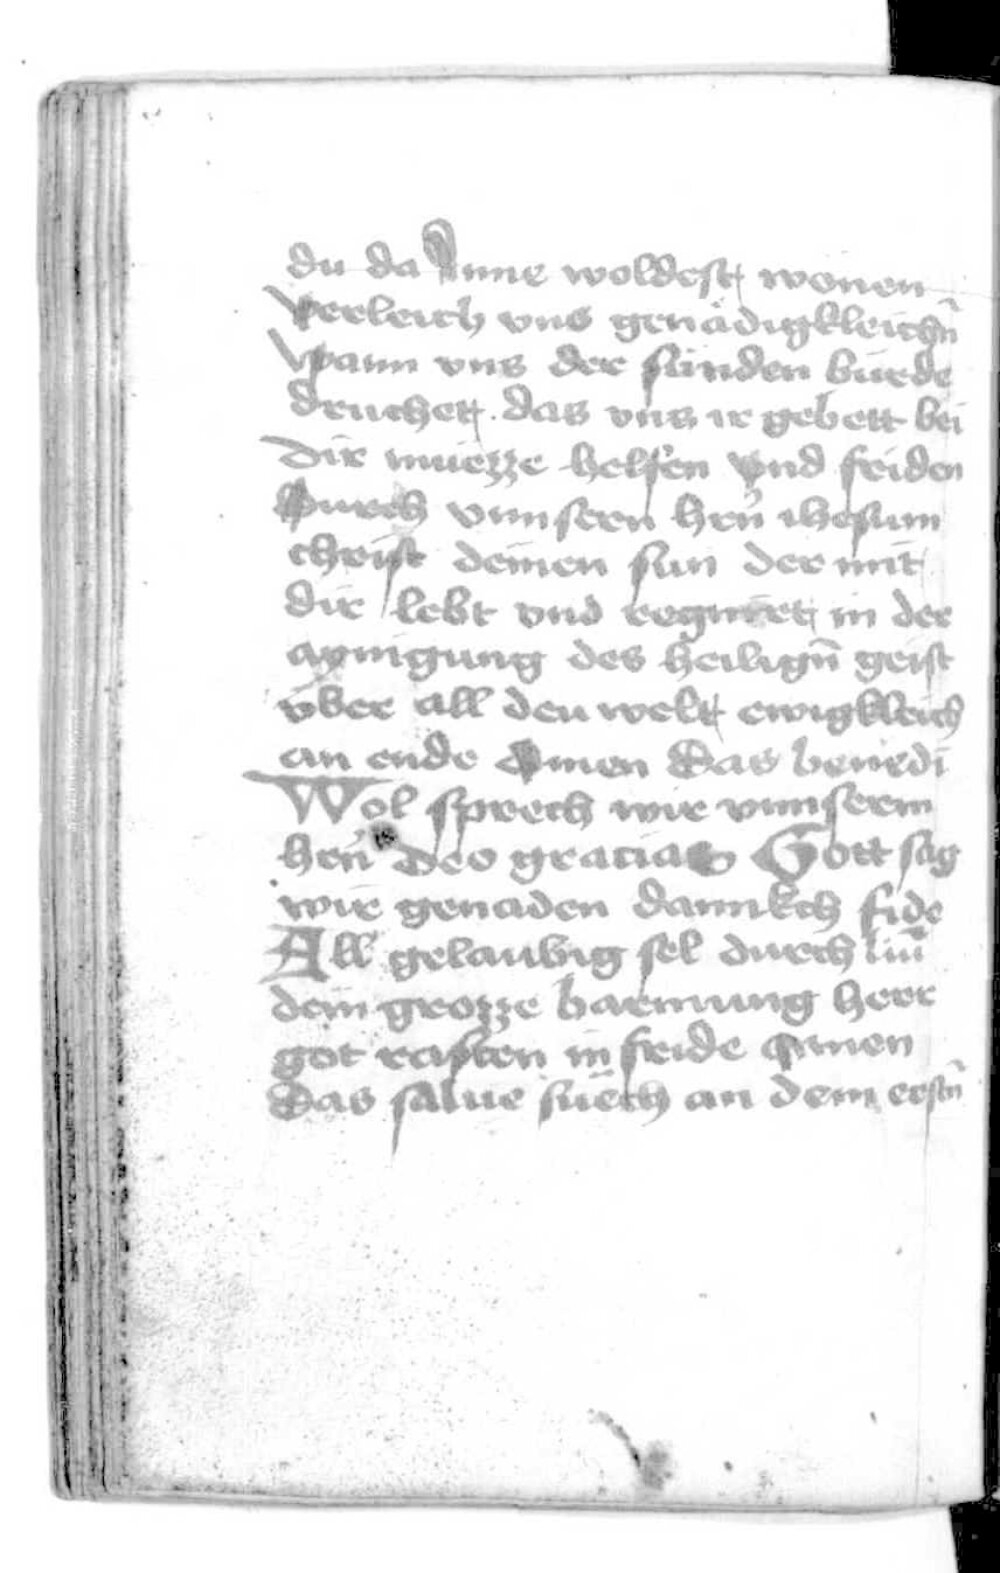 du da Inne woldest wonen
verleich vns genädigkleichn̄
Wann vns der sünden bürde
druchet. das vns ir gebett bei
dir muezze helfen vnd friden
Durch vnnsern hrn̄ ihesum
christ deinen sun der mit
dir lebt vnd regniret in der
aynigung des heilign̄ geist
vber all den welt ewigkleich
an ende Amen Das benedi
Wol sprech wir vnnserm
hrn̄ Deo gracias Gott sag
wir genaden dannkch fide
All gelaubig sel durch
dein grozze barmung herr
got rasten in fride Amen
Das salue suech an dem erstn̄